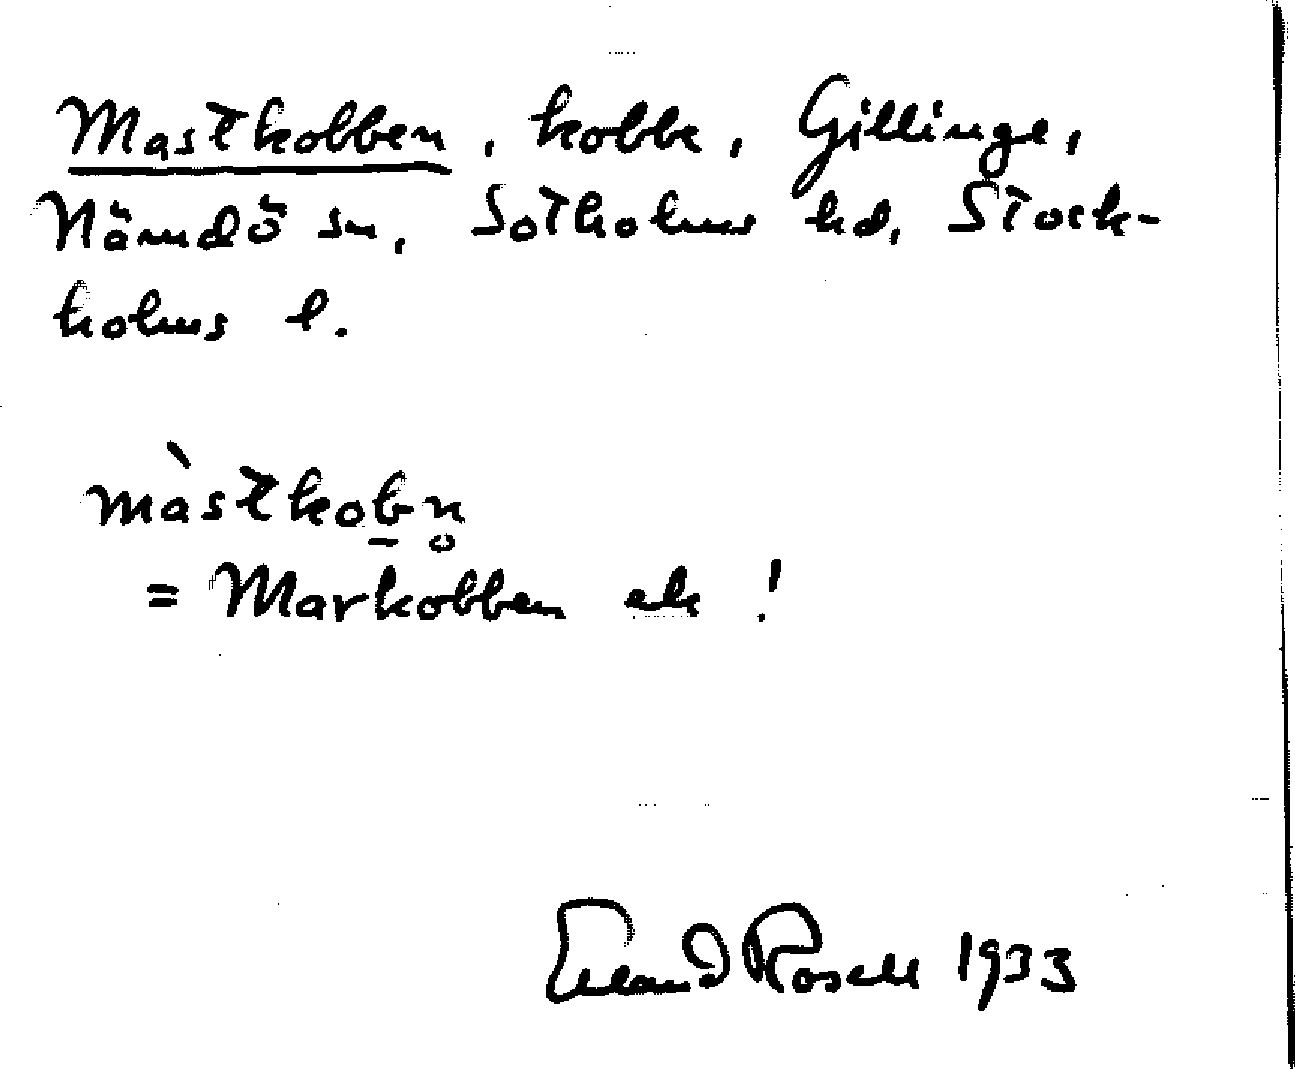 Mastkobben, kobbe, Gillinge,
Nämdö sn, Sotholms hd, Stock-
holms l.
màstkob̲n̥
= Markobben ek !
Erland Rosell 1933